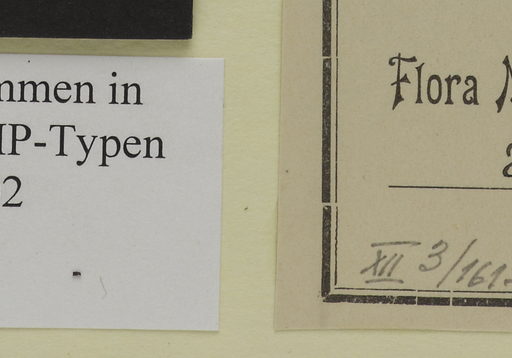 mmen in
IP-Typen
2
Flora
XII 3/161